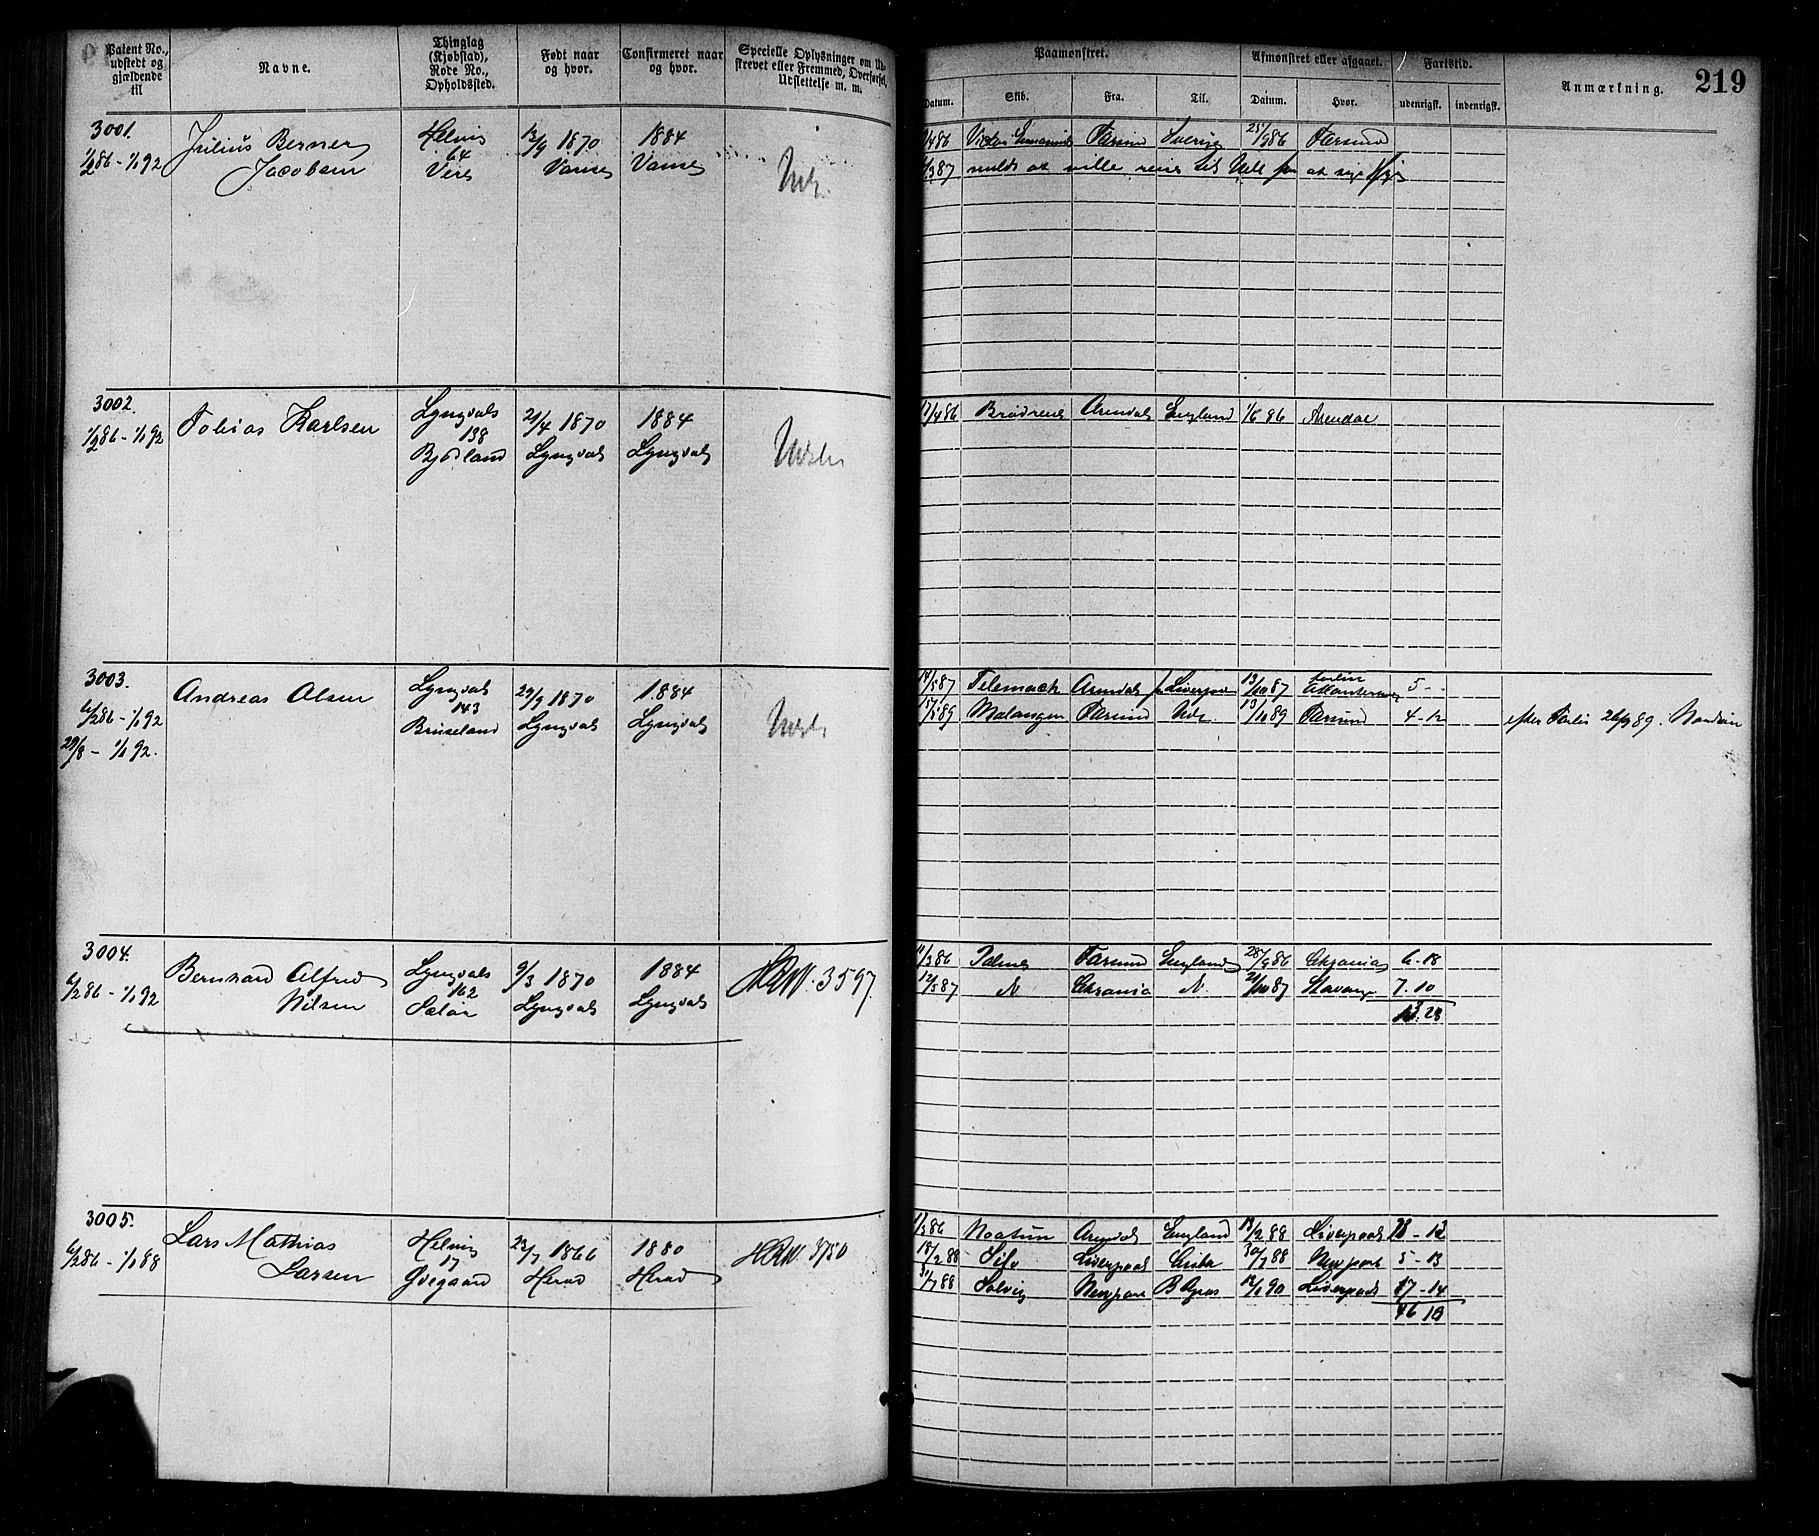 219
Patent No., udstedt og gjældende til
Navne.
Thinglag (Kjøbstad), Rode No., Opholdssted.
Født naar og hvor.
Confirmeret naar og hvor.
Specielle Oplysninger om Udskrevet eller Fremmed, Overførsel, Udslettelse m. m.
Paamønstret.
Afmønstret eller afgaaet.
Fartstid.
Anmærkning.
Datum. Skib. Fra. Til. Datum. Hvor. udenrigsk. indenrigsk.
3001.
1/2 86 - 1/1 92
Julius Berner
Jacobsen
Helvig
64
Vere
13/9 1870
Vanse
1884
Vanse
Udsl.
/4 86 Victor Emanuel Farsund Sverige 25/9 86 Farsund
/3 87 meldt at ville reise til Udl for at søge Hyre
3002.
1/2 86 - 1/1 92
Tobias Karlsen
Lyngdals
138
Bjødland
21/4 1870
Lyngdal
1884
Lyngdal
Udsl.
17/4 86 Brødrene Arendal England 1/6 86 Arendal
3003.
6/2 86 - 1/1 92
29/8 - 1/1 92.
Andreas Olsen
Lyngdal
143
Bruseland
29/9 1870
Lyngdal
1884
Lyngdal
Udsl.
14/5 87 Telemach Arendal Liverpool 13/10 87 5 -
15/5 89 Malangen Farsund Udl 13/10 89 Farsund 4 - 12 efter Forlis 26/9 89.
3004.
6/2 86 - 1/1 92
Bernhard Alfred
Nilsen
Lyngdals
162
Sælør
9/3 1870
Lyngdal
1884
Lyngdal
HRN: 3597.
11/3 86 Palmes Farsund England 28/9 86 Chrania 6 - 18
12/3 87 Chrania 21/10 87 Stavanger 7. 10
13: 28
3005.
6/2 86 - 1/1 88
Lars Mathias
Larsen
Helvig
17
Øvegaard
23/7 1866
Herad
1880
Herad
HRN 3750
1/3 86 Noatun Arendal England 13/2 88 Liverpool 23 - 12
18/2 88 Silo Liverpool 30/7 88 Newport 5 - 13
31/7 88 Solvig Newport B Ayres 12/1 90 Liverpool 17 - 14
46 13